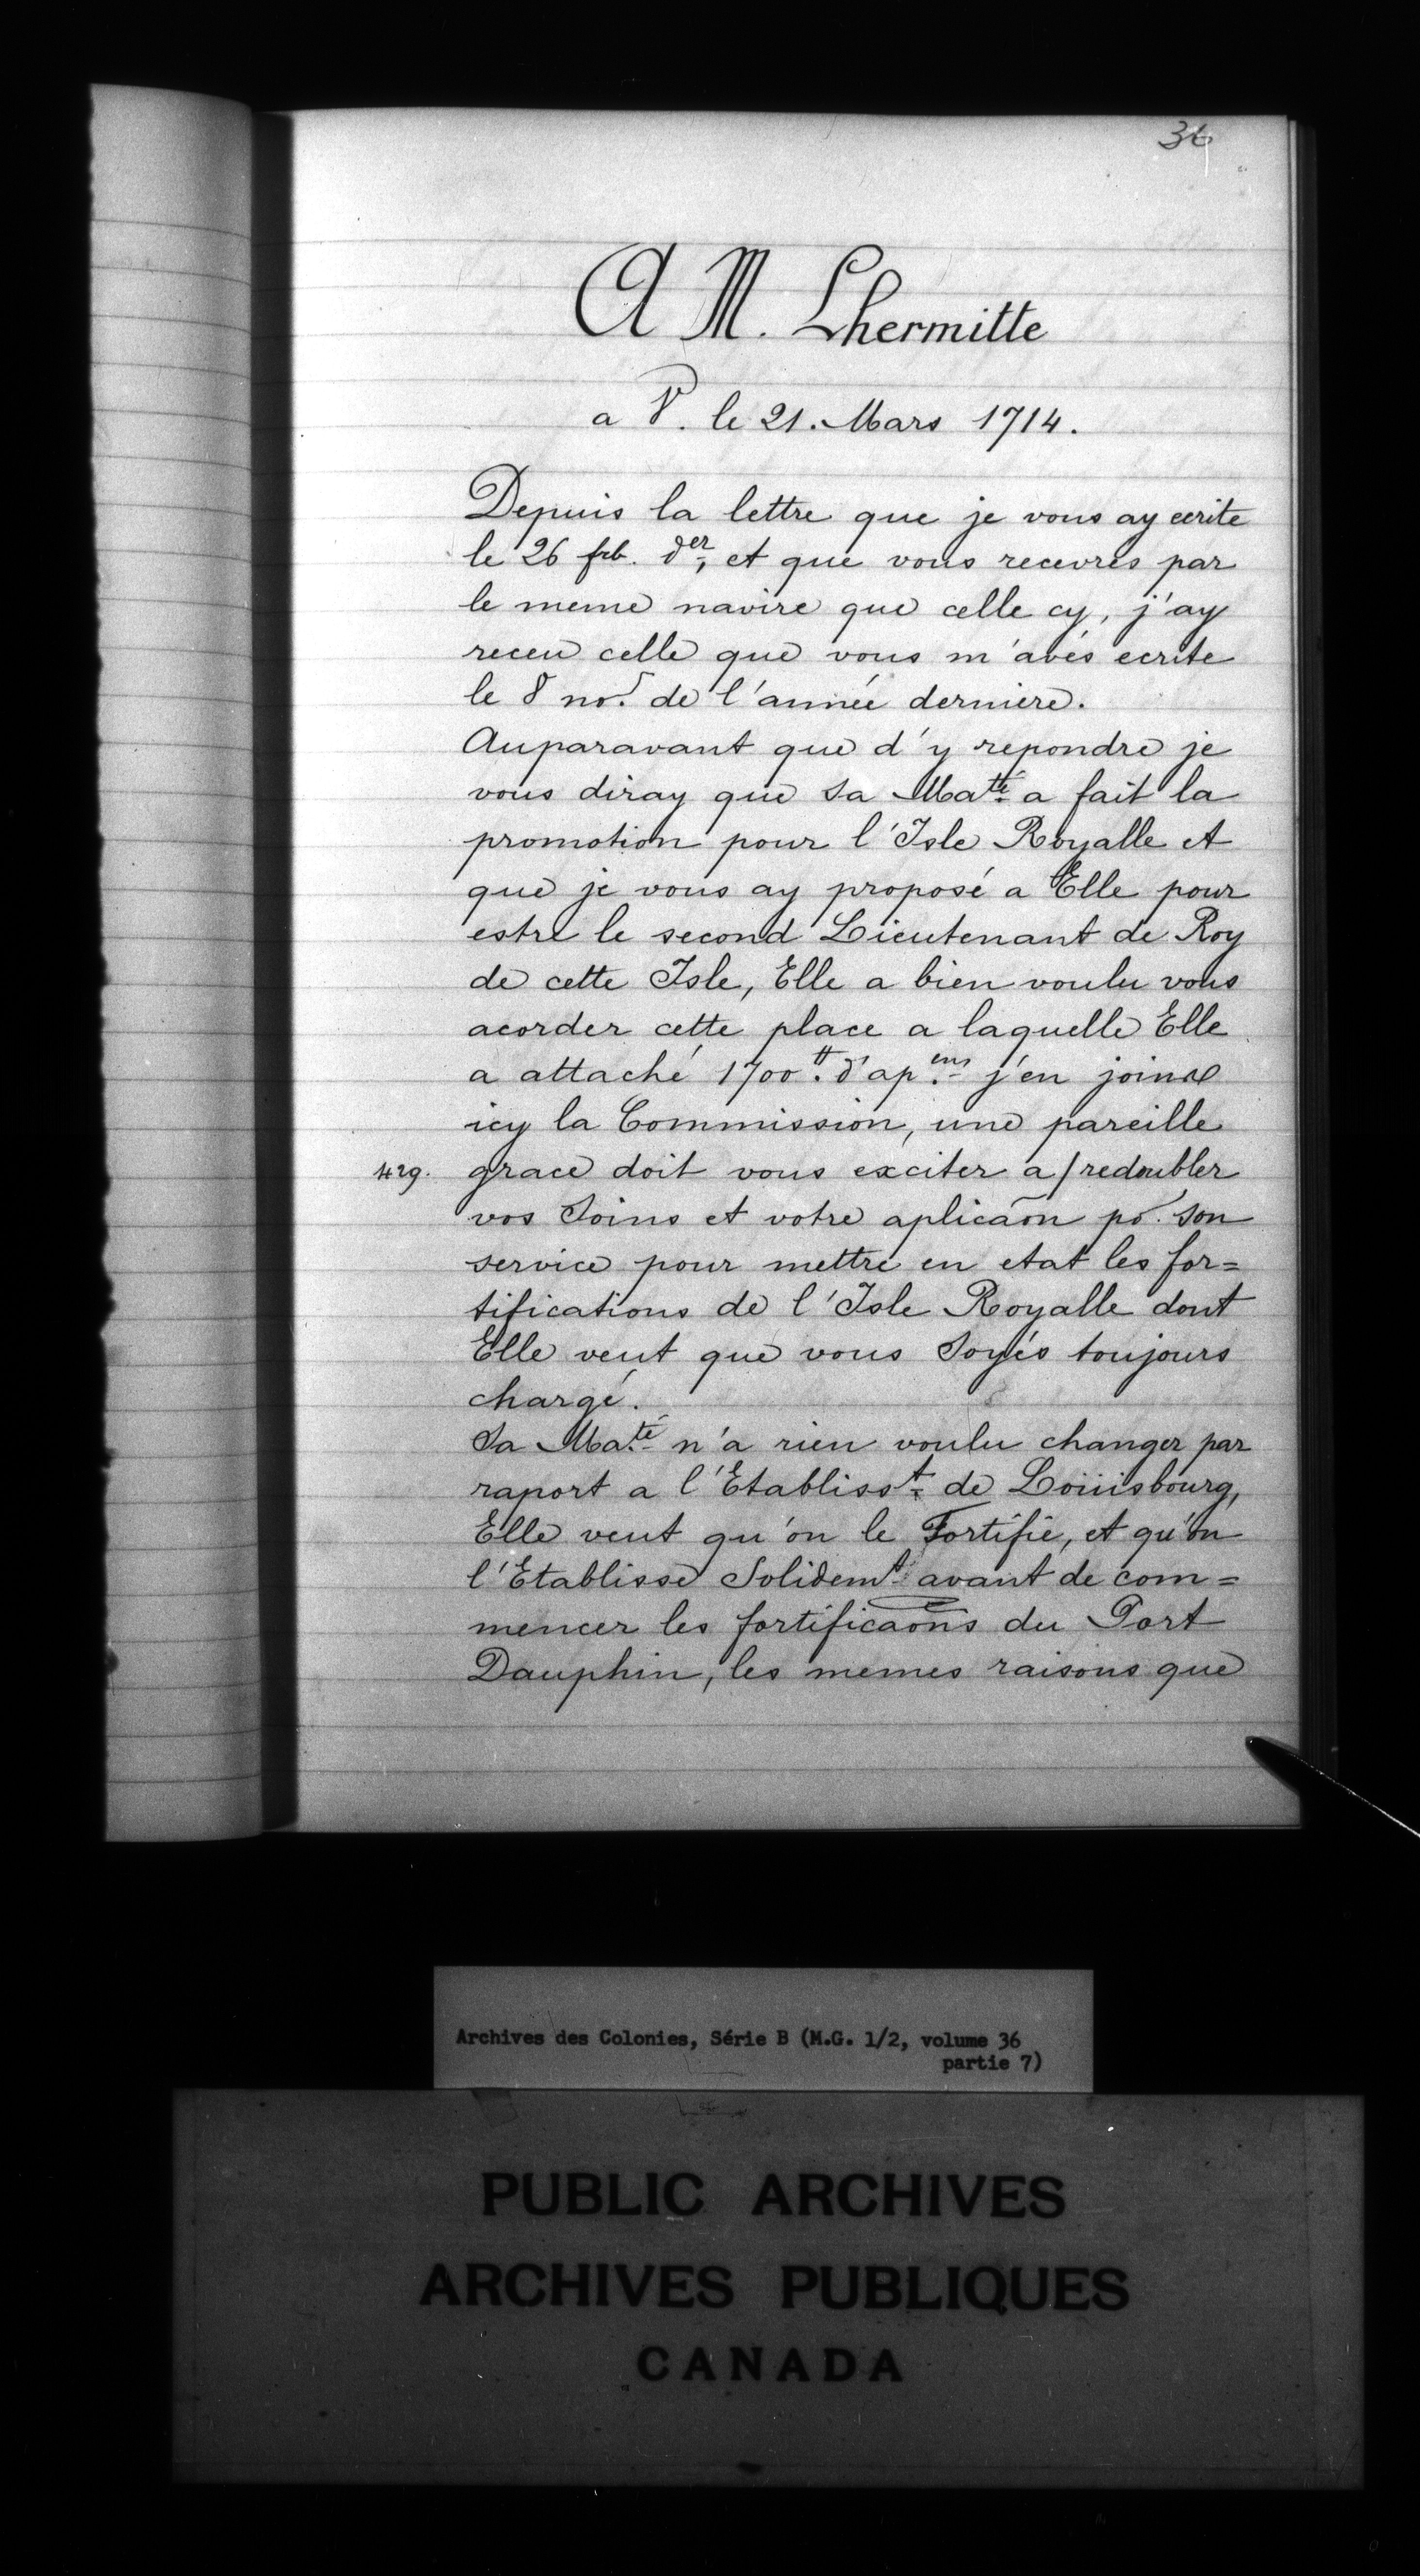 36
A M. Lhermitte
a V. le 21. Mars 1714.
Depuis la lettre que je vous ay ecrite
le 26 feb. der, et que vous recevrés par
le meme navire que celle cy, j'ay
receu celle que vous m'avés ecrite
le 8 nov. de l'année derniere.
Auparavant que d'y repondre je
vous diray que sa Maté a fait la
promotion pour l'Isle Royalle et
que je vous ay proposé a Elle pour
estre le second Lieutenant de Roy
de cette Isle, Elle a bien voulu vous
acorder cette place a laquelle Elle
a attaché 1700tt. d'ap.ens j'en joins
icy la Commission, une pareille
429. grace doit vous exciter a / redoubler
vos Soins et votre aplicaõn pō. son
service pour mettre en etat les for=
tifications de l'Isle Royalle dont
Elle veut que vous Soyés toujours
chargé.
Sa Maté n'a rien voulu changer par
raport a l'Etablisst de Loüisbourg,
Elle veut qu'on le Fortifie, et qu'on
l'Etablisse Solidemt avant de com=
mencer les fortificaons du Port
Dauphin, les memes raisons que
Archives des Colonies, Série B (M.G. 1/2, volume 36
partie 7)
PUBLIC ARCHIVES
ARCHIVES PUBLIQUES
CANADA